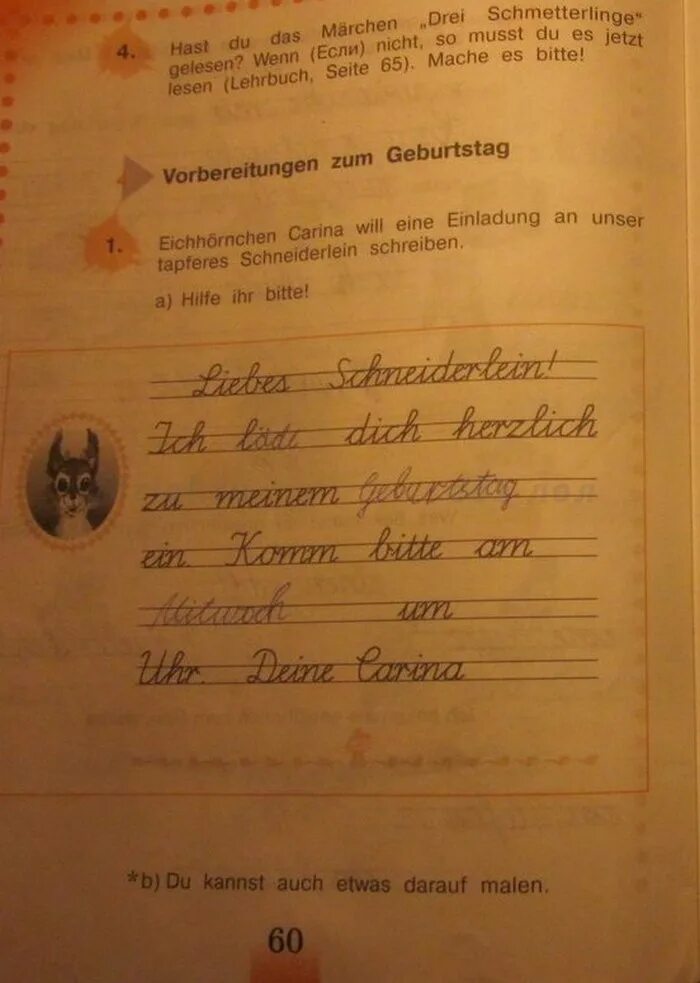 4. Hast du das Märchen „Drei Schmetterlinge“
gelesen? Wenn (Если) nicht, so musst du es jetzt
lesen (Lehrbuch, Seite 65). Mache es bitte!
Vorbereitungen zum Geburtstag
1. Eichhörnchen Carina will eine Einladung an unser
tapferes Schneiderlein schreiben.
a) Hilfe ihr bitte!
Liebes Schneiderlein!
Ich löde dich herzlich
zu meinem Geburtstag
ein. Komm bitte am
Mitwoch um
Uhr. Deine Carina
*b) Du kannst auch etwas darauf malen.
60